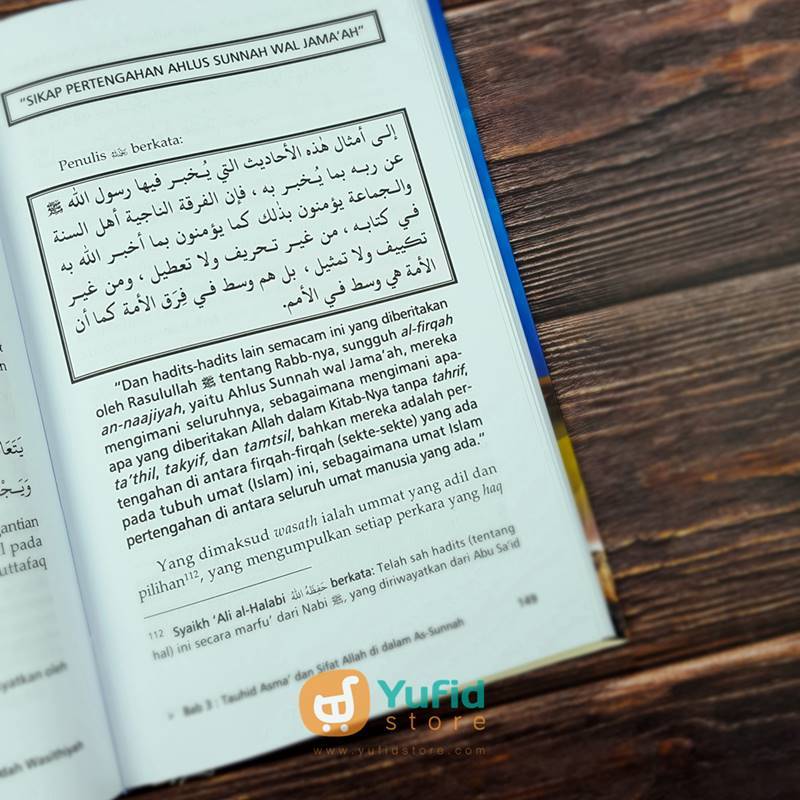 "SIKAP PERTENGAHAN AHLUS SUNNAH WAL JAMA'AH"
Penulis berkata:
إلى أمثال هذه الأحاديث التي يُخبر فيها رسول الله ﷺ
عن ربه بما يُخبر به ، فإن الفرقة الناجية أهل السنة
والجماعة يؤمنون بذلك كما يؤمنون بما أخبر الله به
في كتابه ، من غير تحريف ولا تعطيل ، ومن غير
تكييف ولا تمثيل ، بل هم وسط في فِرَق الأمة كما أن
الأمة هي وسط في الأمم.
"Dan hadits-hadits lain semacam ini yang diberitakan
oleh Rasulullah ﷺ tentang Rabb-nya, sungguh al-firqah
an-naajiyah, yaitu Ahlus Sunnah wal Jama'ah, mereka
mengimani seluruhnya, sebagaimana mengimani apa-
apa yang diberitakan Allah dalam Kitab-Nya tanpa tahrif,
ta'thil, takyif, dan tamtsil, bahkan mereka adalah per-
tengahan di antara firqah-firqah (sekte-sekte) yang ada
pada tubuh umat (Islam) ini, sebagaimana umat Islam
pertengahan di antara seluruh umat manusia yang ada."
Yang dimaksud wasath ialah ummat yang adil dan
pilihan112, yang mengumpulkan setiap perkara yang haq
112 Syaikh 'Ali al-Halabi حَفِظَهُ اللهُ berkata: Telah sah hadits (tentang
hal) ini secara marfu' dari Nabi ﷺ, yang diriwayatkan dari Abu Sa'id
149
> Bab 3 : Tauhid Asma' dan Sifat Allah di dalam As-Sunnah
Yufid
store
www.yufidstore.com